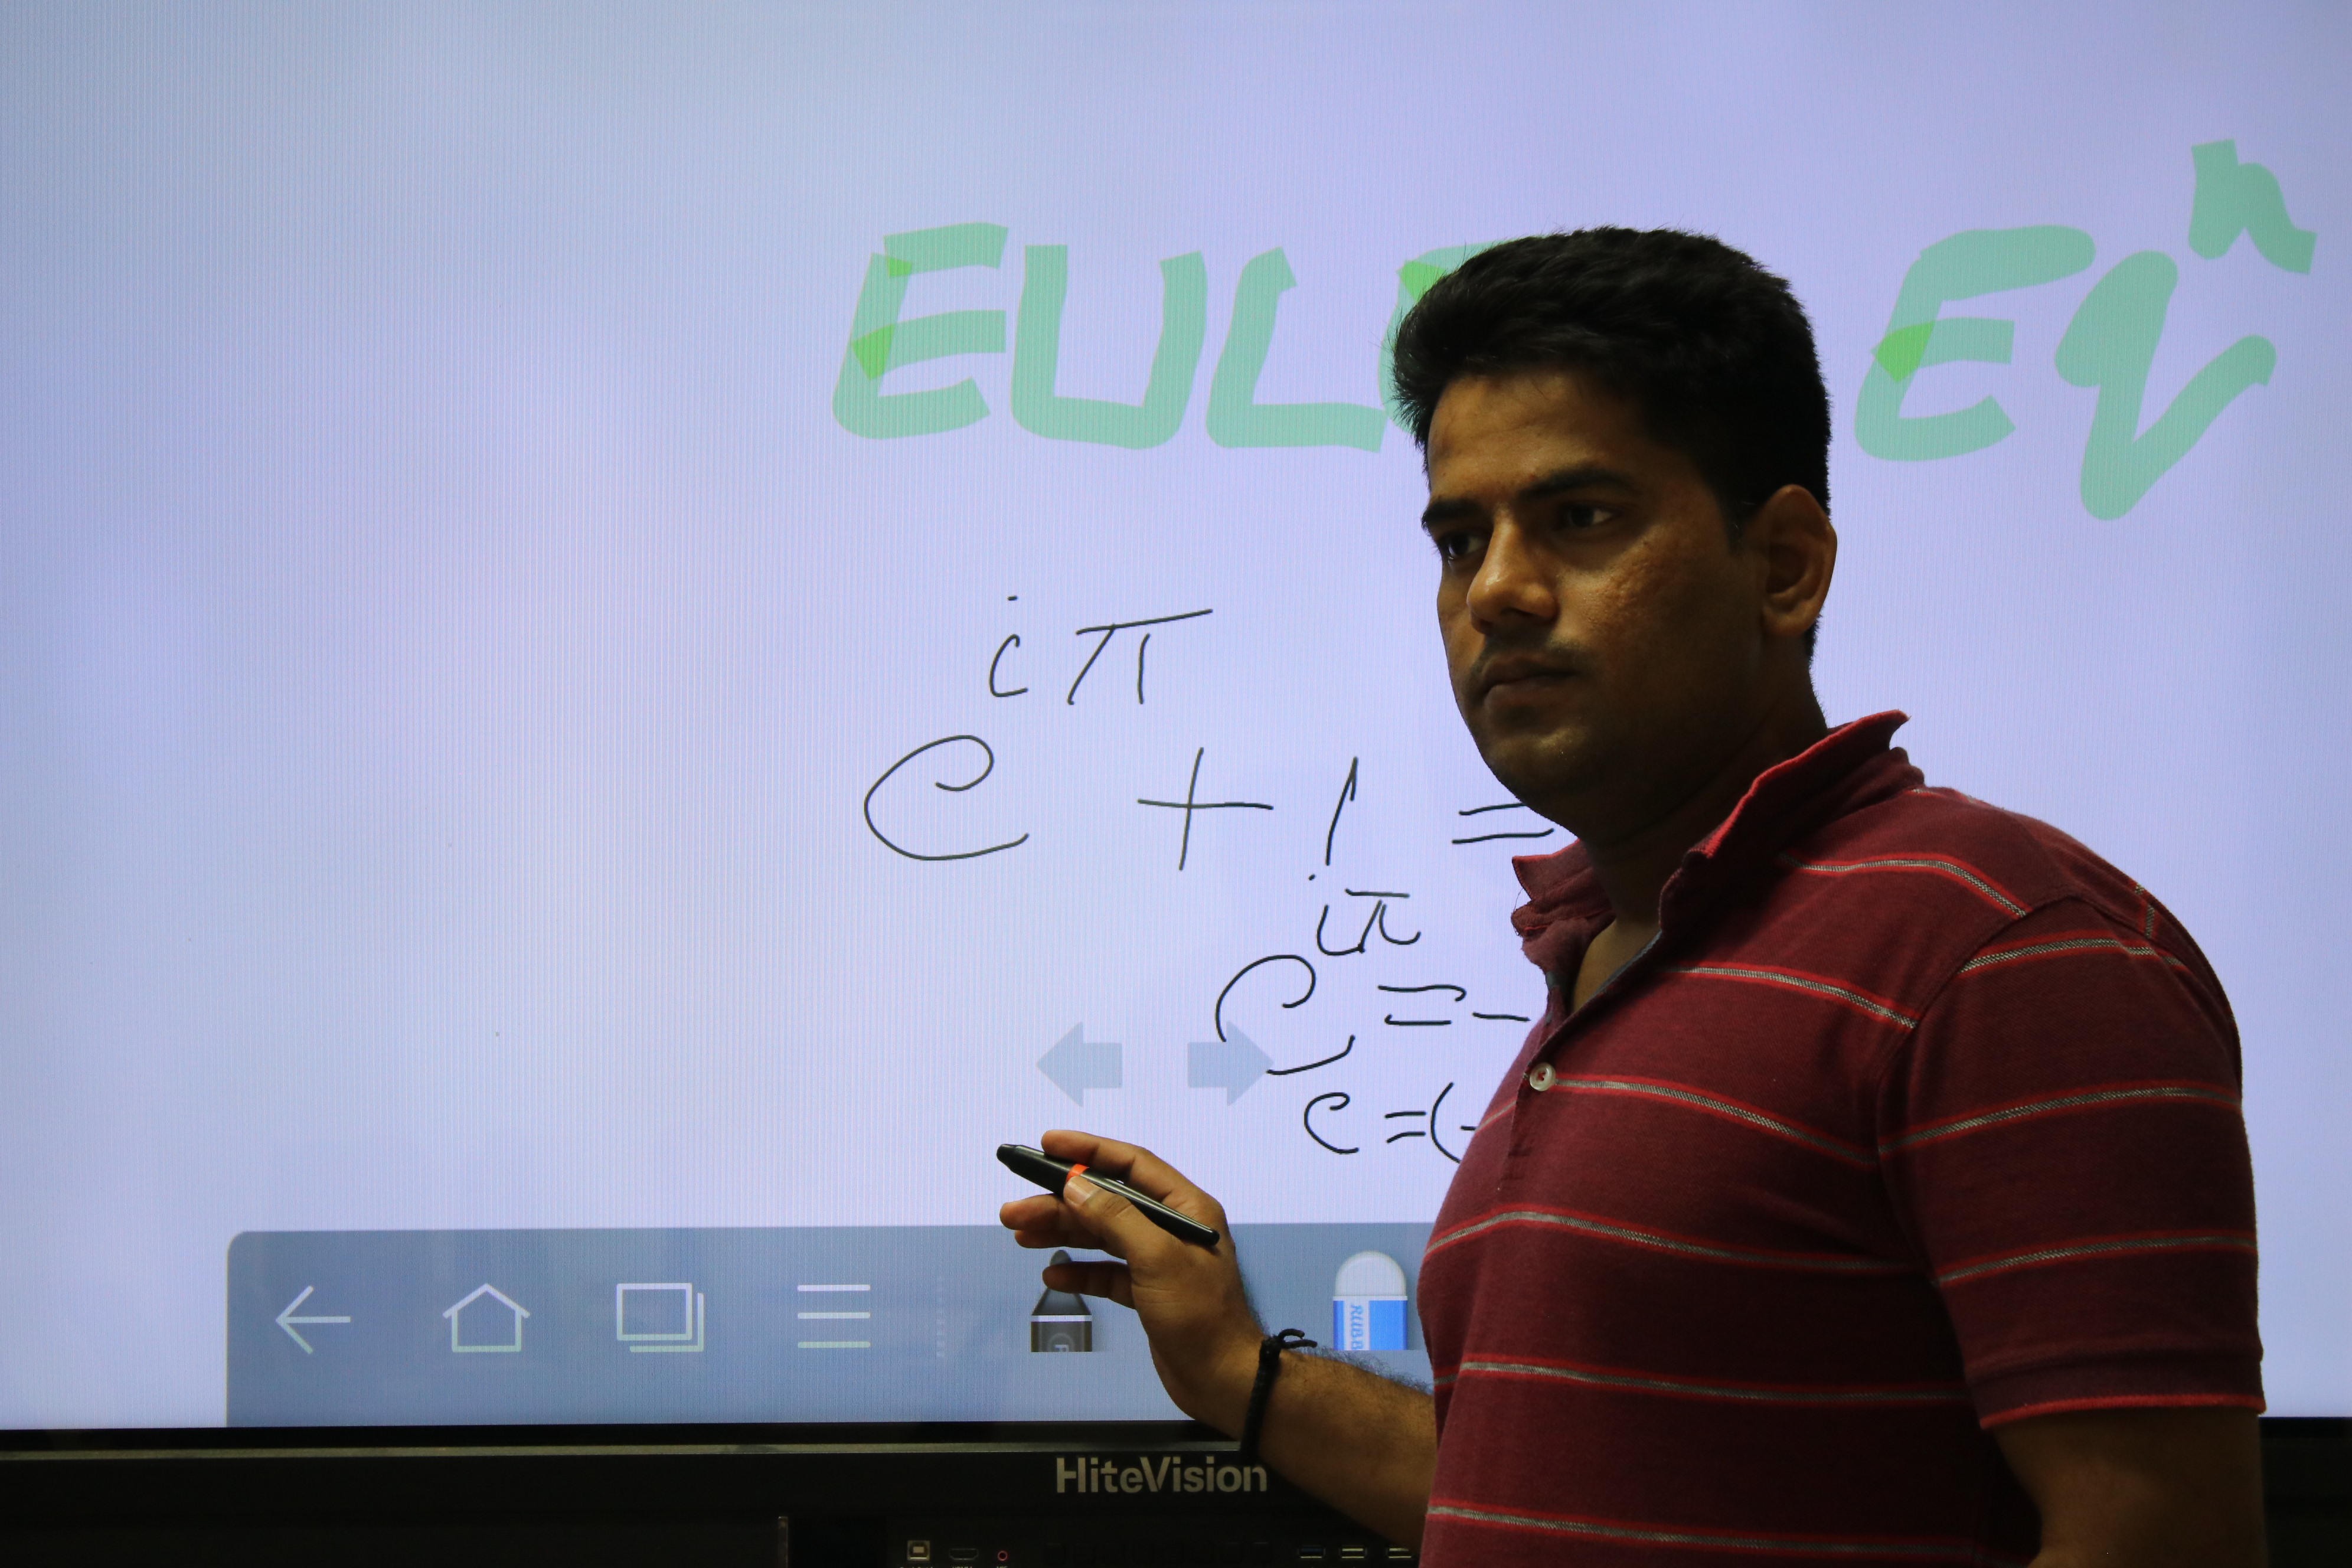 EUL Eqⁿ
e^{iπ} + 1 =
e^{iπ} = -
e = (-
RUBB
HiteVision